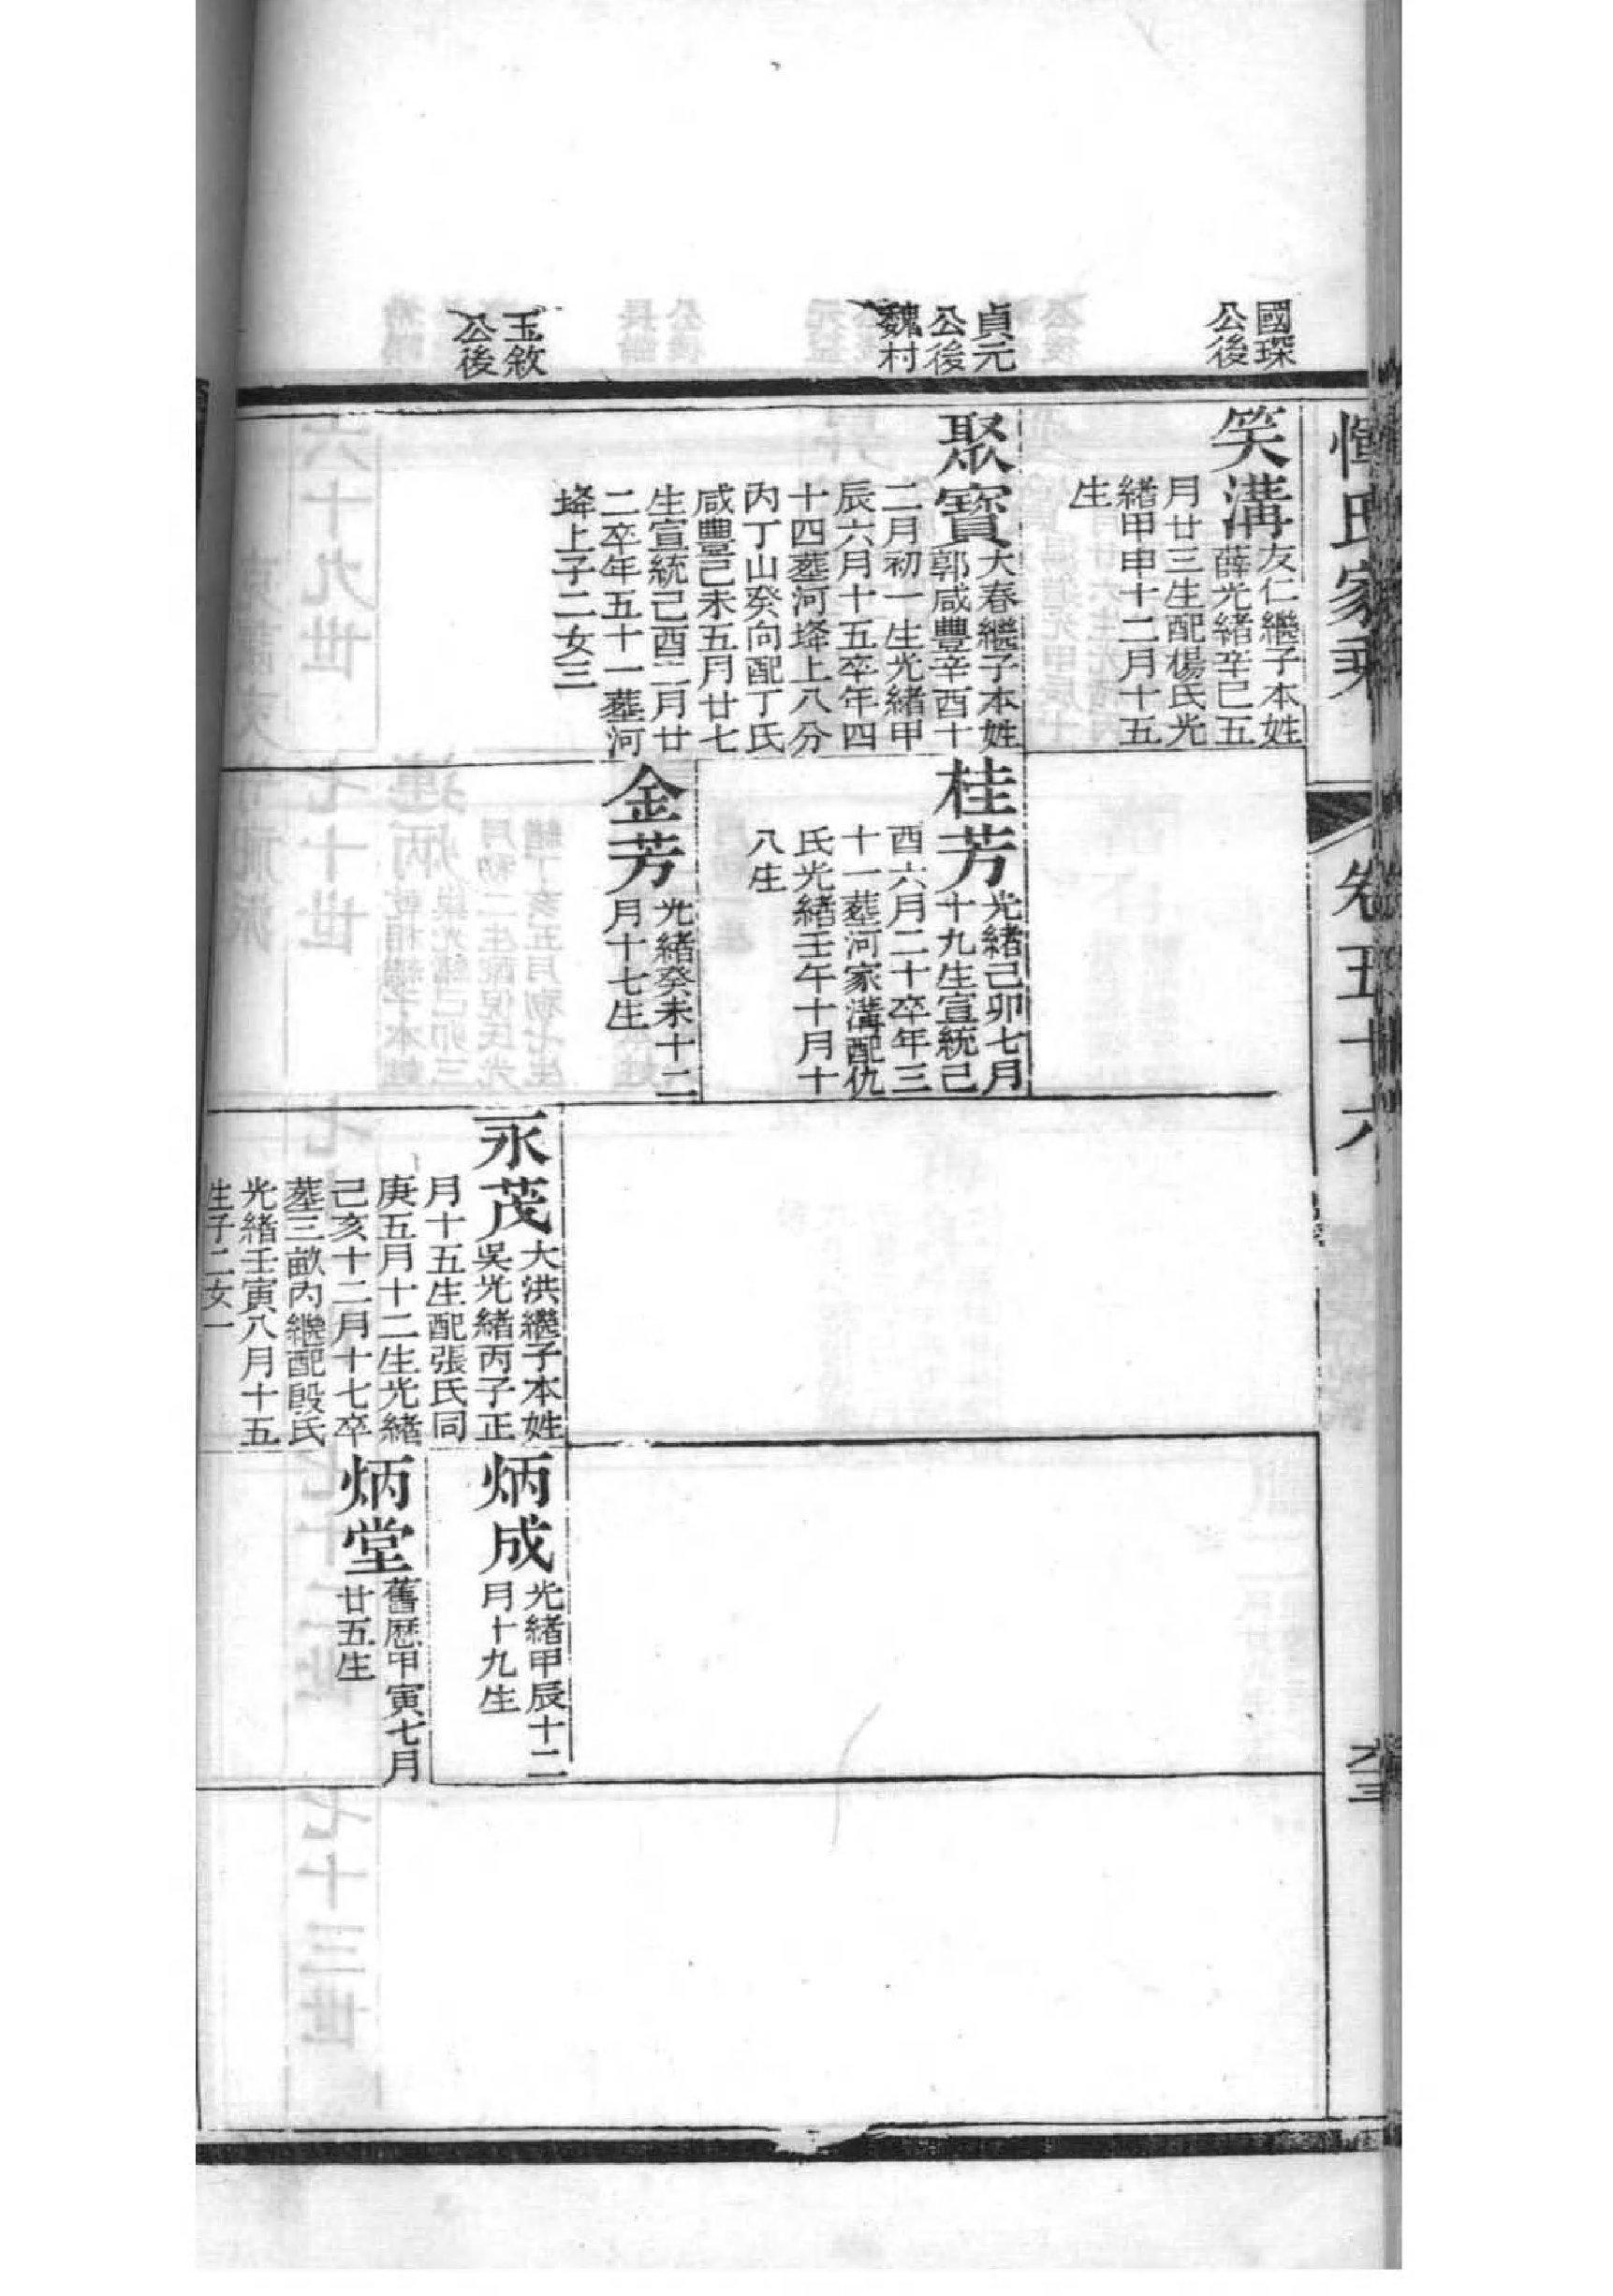 惲氏家乘
卷五十六
國琛
公後
貞元
公後
魏村
玉敘
公後
笑溝
友仁繼子本姓
薛光緒辛巳五
月廿三生配楊氏光
緒甲申十二月十五
生
聚寶
大春繼子本姓
郭咸豐辛酉十
二月初一生光緒甲
辰六月十五卒年四
十四葬河㙦上八分
內丁山癸向配丁氏
咸豐己未五月廿七
生宣統己酉二月廿
二卒年五十一葬河
㙦上子二女三
桂芳
光緒己卯七月
十九生宣統己
酉六月二十卒年三
十一葬河家溝配仇
氏光緒壬午十月十
八生
金芳
光緒癸未十二
月十七生
永茂
大洪繼子本姓
吳光緒丙子正
月十五生配張氏同
庚五月十二生光緒
己亥十二月十七卒
葬三畝內繼配殷氏
光緒壬寅八月十五
生子二女一
炳成
光緒甲辰十二
月十九生
炳堂
舊曆甲寅七月
廿五生